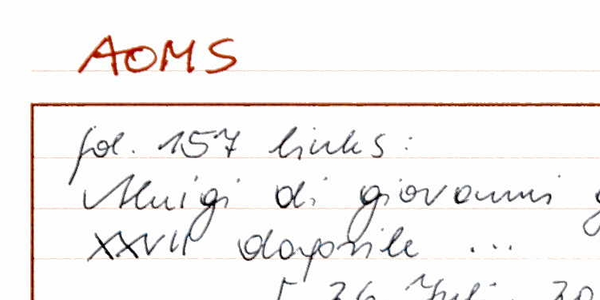 AOMS
fol. 157 links:
Aluigi di giovanni g
XXVII daprile ...
26 Juli 30